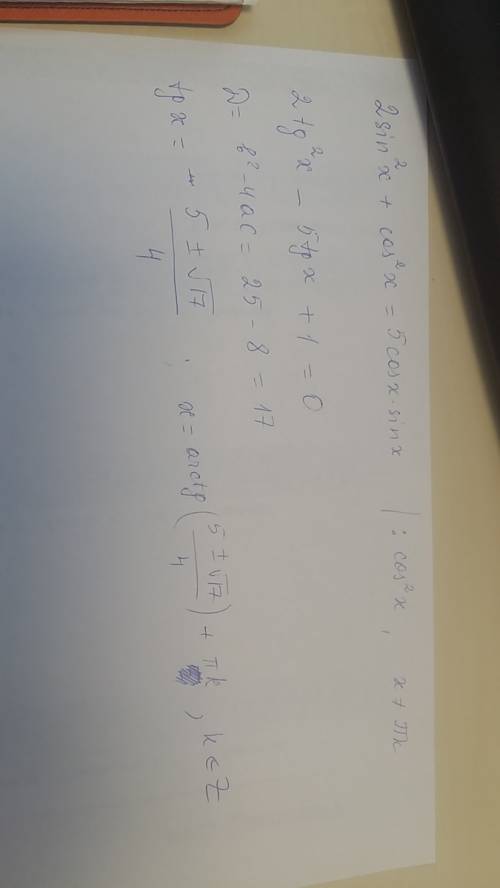 2sin²x + cos²x = 5cosx·sinx | : cos²x, x + πk
2tg²x - 5tgx + 1 = 0
D = b² - 4ac = 25 - 8 = 17
tgx = (5 ± √17)/4 ; x = arctg((5 ± √17)/4) + πk, k ∈ Z